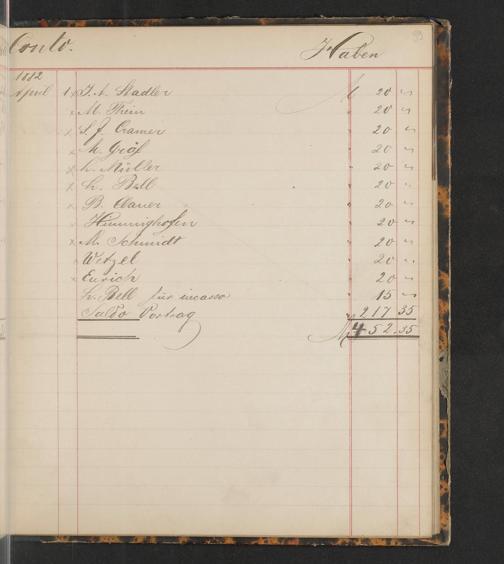 Conto. Haben 93
1882
April 1 x J. A. Stadler M 20 "
x M. Thein " 20 "
x L. J. Cramer " 20 "
x M. Gräf " 20 "
x L. Müller " 20 "
x L. Bell " 20 "
x B. Bauer " 20 "
Hunninghofen " 20 "
x M. Schmidt " 20 "
Wetzel " 20 "
x Eurich " 20 "
L. Bell für incasso " 15 "
Saldo Vortrag " 217 35
M 452.35